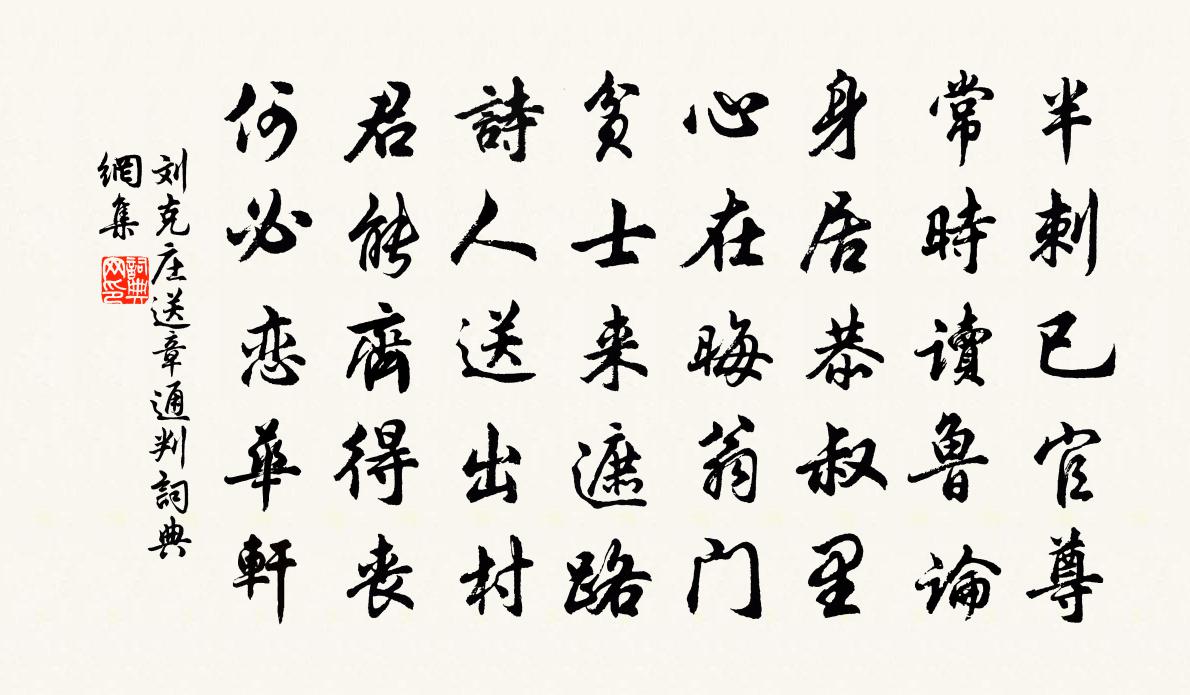 半刺已官尊
常時讀魯論
身居恭叔里
心在晦翁門
貧士来遮路
詩人送出村
君能齊得丧
何必恋華軒
刘克庄送章通判詞典
網集
詞典
网印